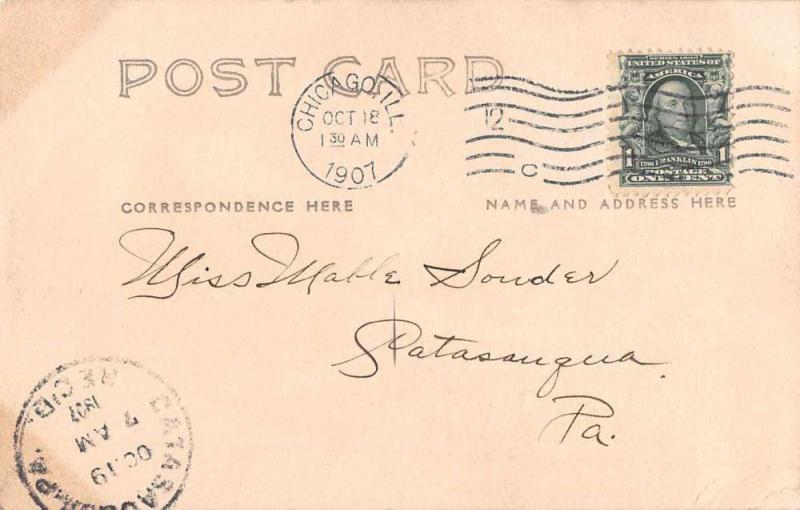 POST CARD
CHICAGO, ILL.
OCT 18
1 30 AM
1907
12
C
SERIES 1902
UNITED STATES OF
AMERICA
1 1706 FRANKLIN 1790 1
POSTAGE
ONE CENT
CORRESPONDENCE HERE
NAME AND ADDRESS HERE
Miss Mable Souder
Catasauqua
Pa.
CATASAUQUA, PA.
OC 19
7 AM
1907
REC'D.